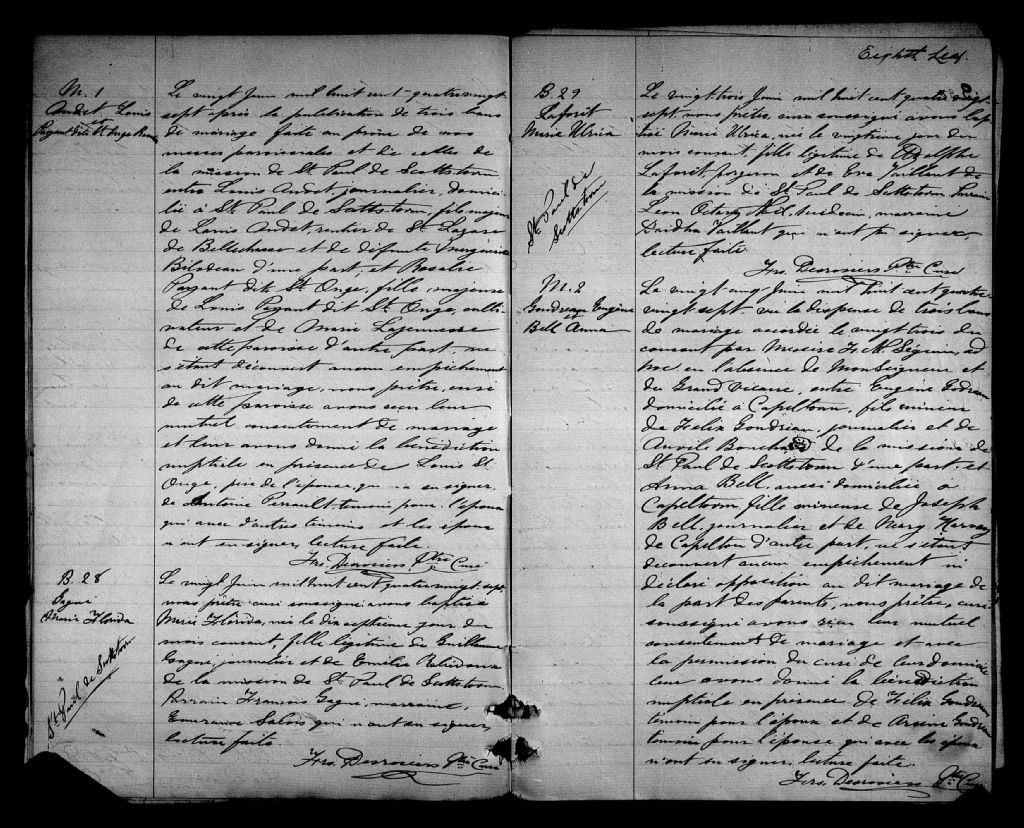 M. 1
Audet Louis
et
Payant dite St Onge Rosa
Le vingt Juin mil huit cent quatre vingt
sept après la publication de trois bans
de mariage faite au prône de nos
messes paroissiales et de celles de
la mission de St. Paul de Scottstown
entre Louis Audet, journalier, domici-
lié à St. Paul de Scottstown, fils majeur
de Louis Audet, rentier de St. Lazare
de Bellechasse et de défunte
Bilodeau d'une part, et Rosalie
Payant dit St. Onge, fille majeure
de Louis Payant dit St. Onge, culti-
vateur et de Marie Lajeunesse
de cette paroisse d'autre part, ne
s'étant découvert aucun empêchement
au dit mariage, nous prêtre, curé
de cette paroisse avons reçu leur
mutuel consentement de mariage
et leur avons donné la bénédiction
nuptiale en présence de Louis St.
Onge, père de l'épouse, qui n'a su signer,
de Antoine Perrault témoin pour l'époux
qui avec d'autres témoins et les époux
n'ont su signer, lecture faite.
Frs. Desrosiers Ptre Curé
B. 28
Gagné
Marie Florida
St. Paul de Scottstown
Le vingt Juin mil huit cent quatre vingt sept,
nous prêtre curé soussigné avons baptisé
Marie Florida, née le dix septième jour du
mois courant, fille légitime de Guillaume
Gagné, journalier et de Emilie
de la mission de St. Paul de Scottstown,
Parrain François Gagné, marraine,
Emerance qui n'ont su signer,
lecture faite.
Frs. Desrosiers Ptre Curé
Eighth Leaf.
8
B. 29
Laforêt
Marie Ulrica
St. Paul de
Scottstown
Le vingt trois Juin mil huit cent quatre vingt-
sept, nous prêtre, curé soussigné avons bap-
tisé Marie Ulrica, née le vingtième jour du
mois courant, fille légitime de Adolphe
Laforêt, forgeron et de Eva Vaillant de
la mission de St. Paul de Scottstown. Parrain
Leon Octave marraine
Vaillant qui n'ont pu signer,
lecture faite.
Frs. Desrosiers Ptre Curé
M. 2
Goudreau Eugène
et
Bell Anna
Le vingt cinq Juin mil huit cent quatre
vingt sept - vu la dispense de trois bans
de mariage accordée le vingt trois du
courant par Messire F. H. Séguin, ad
hoc en l'absence de Monseigneur et
du Grand Vicaire, entre Eugène Godreau
domicilié à Capelton, fils mineur
de Felix Goudreau, journalier et de
de la mission de
St. Paul de Scottstown d'une part, et
Anna Bell, aussi domiciliée à
Capeltown, fille mineure de Joseph
Bell, journalier et de Mary Harvey
de Capelton d'autre part, ne s'étant
découvert aucun empêchement ni
déclaré opposition au dit mariage de
la part des parents, nous prêtre, curé
soussigné avons reçu leur mutuel
consentement de mariage et avec
la permission du curé de leur domicile
leur avons donné la bénédiction
nuptiale en présence de Felix Goudreau,
témoin pour l'époux et de Goudreau
témoin pour l'épouse qui avec les époux
n'ont su signer, lecture faite.
Frs. Desrosiers Ptre Curé